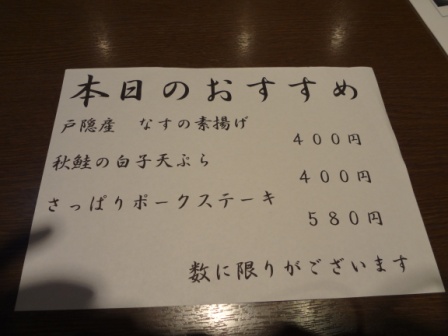 本日のおすすめ
戸隠産　なすの素揚げ
４００円
秋鮭の白子天ぷら
４００円
さっぱりポークステーキ
５８０円
数に限りがございます